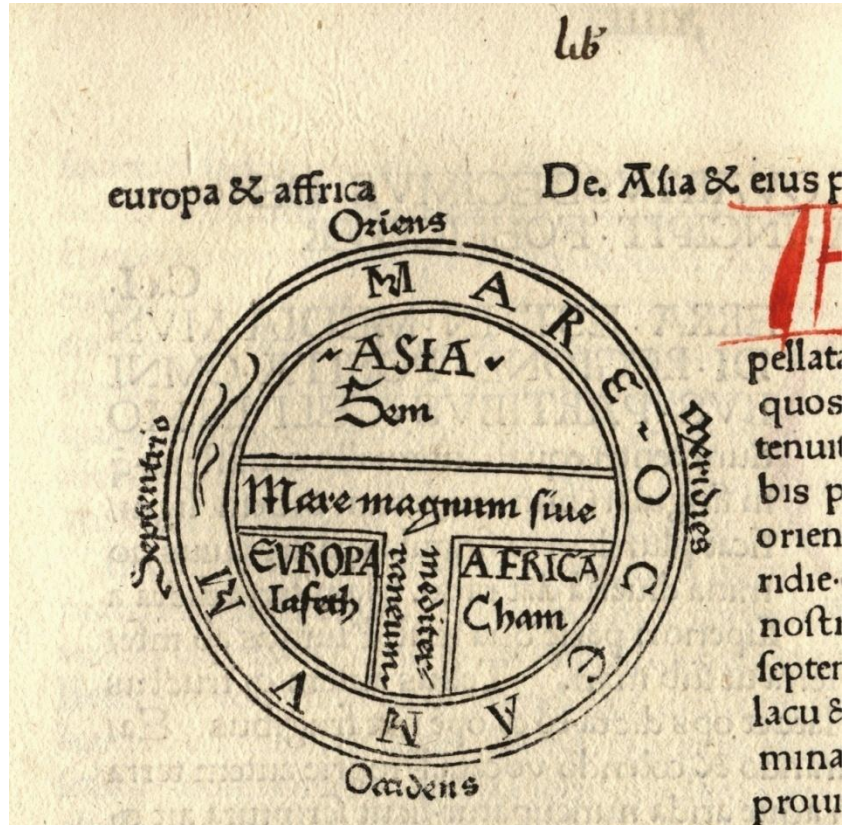 lib
europa & affrica
De. Asia & eius p
Oriens
MARE · OCCEANUM
ASIA
Sem
Septentrio
Meridies
Mare magnum siue
EVROPA
Iafeth
mediter
raneum
AFRICA
Cham
Occidens
pellata
quos
tenuit
bis p
orien
ridie·
nostr
septen
lacu &
mina
proui